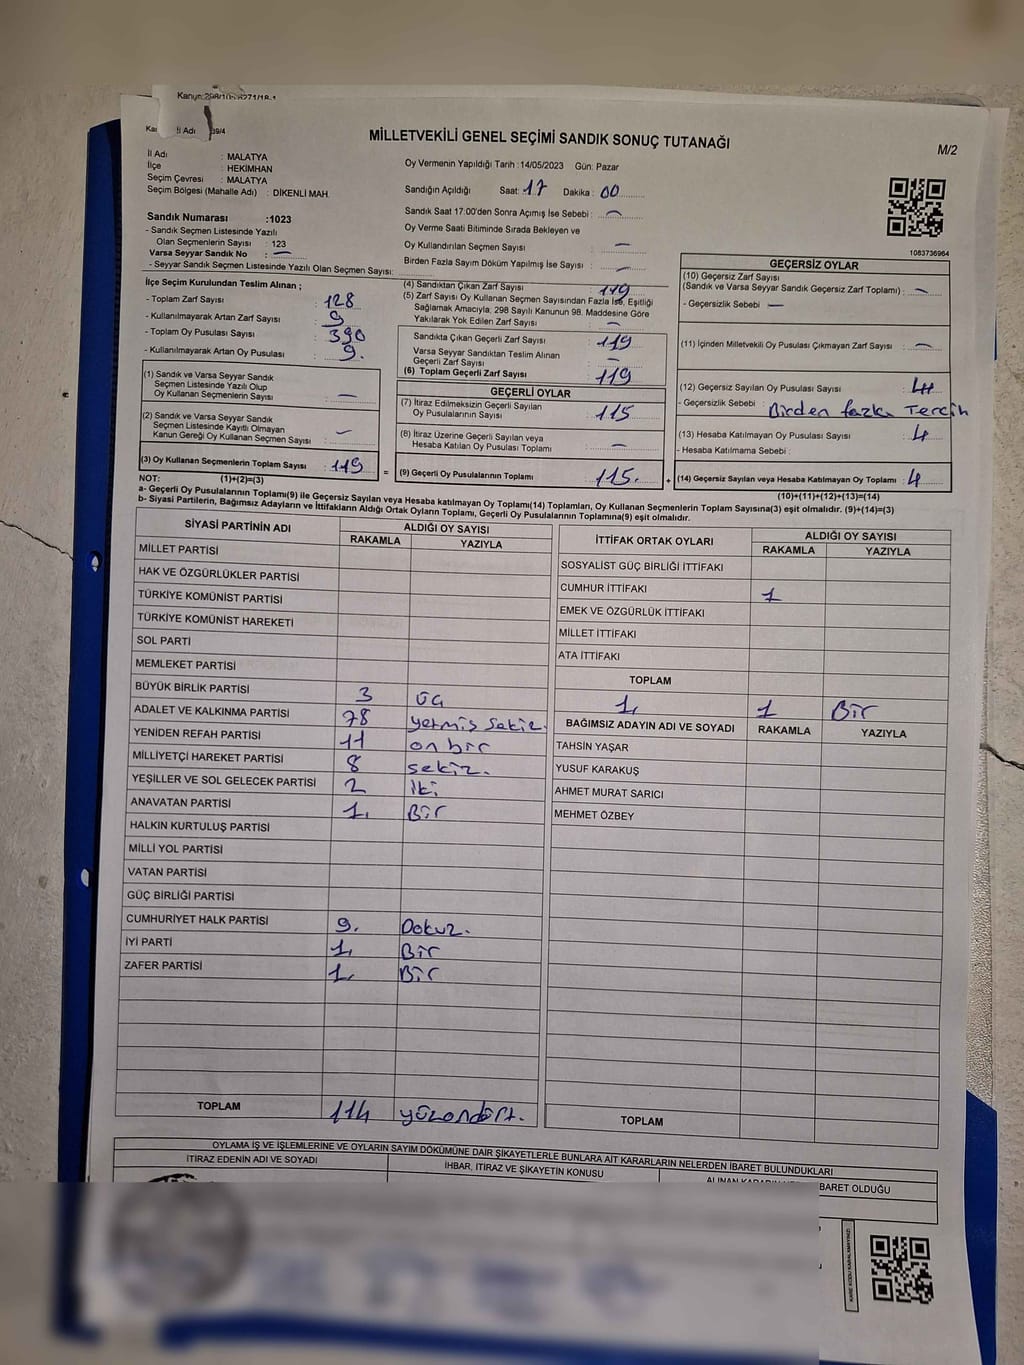 MİLLETVEKİLİ GENEL SEÇİMİ SANDIK SONUÇ TUTANAĞI
M/2
İl Adı : MALATYA
İlçe : HEKİMHAN
Seçim Çevresi : MALATYA
Seçim Bölgesi (Mahalle Adı) : DİKENLİ MAH.
Sandık Numarası :1023
- Sandık Seçmen Listesinde Yazılı
Olan Seçmenlerin Sayısı : 123
Varsa Seyyar Sandık No : —
- Seyyar Sandık Seçmen Listesinde Yazılı Olan Seçmen Sayısı:
Oy Vermenin Yapıldığı Tarih :14/05/2023 Gün: Pazar
Sandığın Açıldığı Saat: 17 Dakika : 00
Sandık Saat 17:00'den Sonra Açımış İse Sebebi : —
Oy Verme Saati Bitiminde Sırada Bekleyen ve
Oy Kullandırılan Seçmen Sayısı —
Birden Fazla Sayım Döküm Yapılmış İse Sayısı : —
1083736964
İlçe Seçim Kurulundan Teslim Alınan ;
- Toplam Zarf Sayısı : 128
- Kullanılmayarak Artan Zarf Sayısı : 9
- Toplam Oy Pusulası Sayısı : 390
- Kullanılmayarak Artan Oy Pusulası : 9.
(1) Sandık ve Varsa Seyyar Sandık
Seçmen Listesinde Yazılı Olup
Oy Kullanan Seçmenlerin Sayısı : —
(2) Sandık ve Varsa Seyyar Sandık
Seçmen Listesinde Kayıtlı Olmayan
Kanun Gereği Oy Kullanan Seçmen Sayısı : —
(3) Oy Kullanan Seçmenlerin Toplam Sayısı : 119
(1)+(2)=(3)
(4) Sandıktan Çıkan Zarf Sayısı : 119
(5) Zarf Sayısı Oy Kullanan Seçmen Sayısından Fazla İse, Eşitliği
Sağlamak Amacıyla; 298 Sayılı Kanunun 98. Maddesine Göre
Yakılarak Yok Edilen Zarf Sayısı : —
Sandıkta Çıkan Geçerli Zarf Sayısı : 119
Varsa Seyyar Sandıktan Teslim Alınan
Geçerli Zarf Sayısı : —
(6) Toplam Geçerli Zarf Sayısı : 119
GEÇERLİ OYLAR
(7) İtiraz Edilmeksizin Geçerli Sayılan
Oy Pusulalarının Sayısı : 115
(8) İtiraz Üzerine Geçerli Sayılan veya
Hesaba Katılan Oy Pusulaları Toplamı : —
= (9) Geçerli Oy Pusulalarının Toplamı : 115.
GEÇERSİZ OYLAR
(10) Geçersiz Zarf Sayısı
(Sandık ve Varsa Seyyar Sandık Geçersiz Zarf Toplamı) : —
- Geçersizlik Sebebi : —
(11) İçinden Milletvekili Oy Pusulası Çıkmayan Zarf Sayısı : —
(12) Geçersiz Sayılan Oy Pusulası Sayısı :
- Geçersizlik Sebebi : Birden fazla Tercih
(13) Hesaba Katılmayan Oy Pusulası Sayısı : 4
- Hesaba Katılmama Sebebi :
+ (14) Geçersiz Sayılan veya Hesaba Katılmayan Oy Toplamı : 4
(10)+(11)+(12)+(13)=(14)
NOT:
a- Geçerli Oy Pusulalarının Toplamı(9) ile Geçersiz Sayılan veya Hesaba katılmayan Oy Toplamı(14) Toplamları, Oy Kullanan Seçmenlerin Toplam Sayısına(3) eşit olmalıdır. (9)+(14)=(3)
b- Siyasi Partilerin, Bağımsız Adayların ve İttifakların Aldığı Ortak Oyların Toplamı, Geçerli Oy Pusulalarının Toplamına(9) eşit olmalıdır.
SİYASİ PARTİNİN ADI ALDIĞI OY SAYISI
RAKAMLA YAZIYLA
MİLLET PARTİSİ
HAK VE ÖZGÜRLÜKLER PARTİSİ
TÜRKİYE KOMÜNİST PARTİSİ
TÜRKİYE KOMÜNİST HAREKETİ
SOL PARTİ
MEMLEKET PARTİSİ
BÜYÜK BİRLİK PARTİSİ 3 üç
ADALET VE KALKINMA PARTİSİ 78 yetmiş sekiz.
YENİDEN REFAH PARTİSİ 11 on bir
MİLLİYETÇİ HAREKET PARTİSİ 8 sekiz.
YEŞİLLER VE SOL GELECEK PARTİSİ 2 iki
ANAVATAN PARTİSİ 1. Bir
HALKIN KURTULUŞ PARTİSİ
MİLLİ YOL PARTİSİ
VATAN PARTİSİ
GÜÇ BİRLİĞİ PARTİSİ
CUMHURİYET HALK PARTİSİ 9. Dokuz.
İYİ PARTİ 1. Bir
ZAFER PARTİSİ 1. Bir
TOPLAM 114 yüzondört.
İTTİFAK ORTAK OYLARI ALDIĞI OY SAYISI
RAKAMLA YAZIYLA
SOSYALİST GÜÇ BİRLİĞİ İTTİFAKI
CUMHUR İTTİFAKI 1
EMEK VE ÖZGÜRLÜK İTTİFAKI
MİLLET İTTİFAKI
ATA İTTİFAKI
TOPLAM
1. 1 Bir
BAĞIMSIZ ADAYIN ADI VE SOYADI RAKAMLA YAZIYLA
TAHSİN YAŞAR
YUSUF KARAKUŞ
AHMET MURAT SARICI
MEHMET ÖZBEY
TOPLAM
OYLAMA İŞ VE İŞLEMLERİNE VE OYLARIN SAYIM DÖKÜMÜNE DAİR ŞİKAYETLERLE BUNLARA AİT KARARLARIN NELERDEN İBARET BULUNDUKLARI
İTİRAZ EDENİN ADI VE SOYADI İHBAR, İTİRAZ VE ŞİKAYETİN KONUSU BARET OLDUĞU